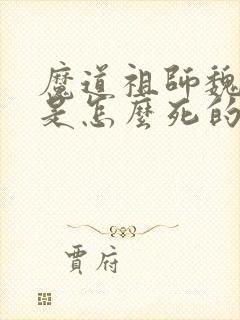 魔道祖師魏
是怎麼死的
賈府